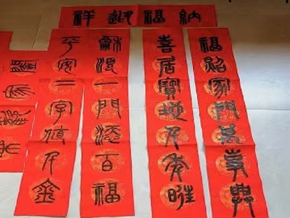 納福迎祥
福照家門萬事興
喜居寶地千年旺
龢順一門添百福
平安二字值千金